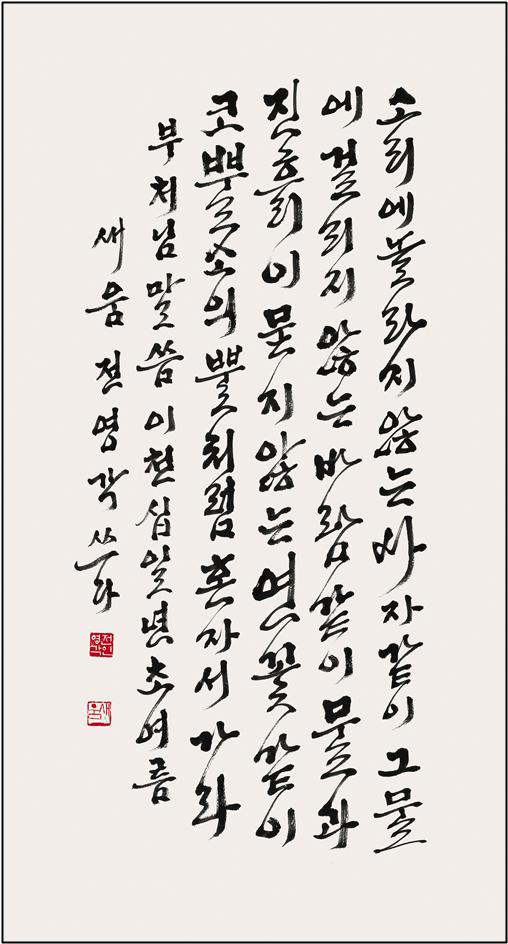 소리에 놀라지 않는 사자같이 그물
에 걸리지 않는 바람같이 물과
진흙이 묻지 않는 연꽃같이
코뿔소의 뿔처럼 혼자서 가라
부처님 말씀 이천십일년 초여름
새움 전영각 쓰다
전인영각
새움